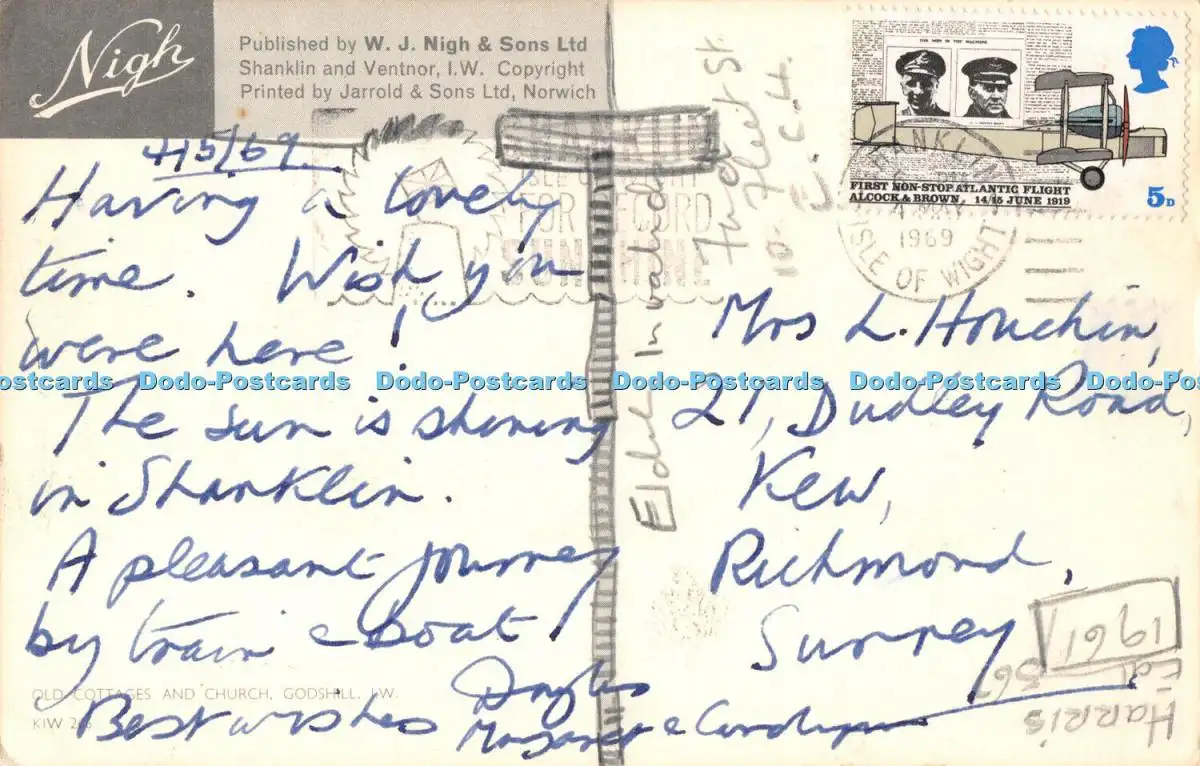 Nigh
W. J. Nigh & Sons Ltd
Copyright
Printed by Jarrold & Sons Ltd, Norwich
4/5/69
Having a lovely
time. Wish you
were here!
The sun is shining
in Shanklin.
A pleasant journey
by train & boat
Best wishes Douglas
Margaret &
OLD COTTAGES AND CHURCH, GODSHILL, I.W.
KIW
ISLE OF WIGHT
FOR RECORD
SUNSHINE
Elderly Invalids
Fund
10 Fleet St
E.C.4
FIRST NON-STOP ATLANTIC FLIGHT
ALCOCK & BROWN, 14/15 JUNE 1919
5D
SHANKLIN
4 MAY
1969
ISLE OF WIGHT
Mrs L. Houchin,
27, Dudley Road,
Kew,
Richmond,
Surrey
1961
Harris
Dodo-Postcards Dodo-Postcards Dodo-Postcards Dodo-Postcards Dodo-Postcards Dodo-Postcards